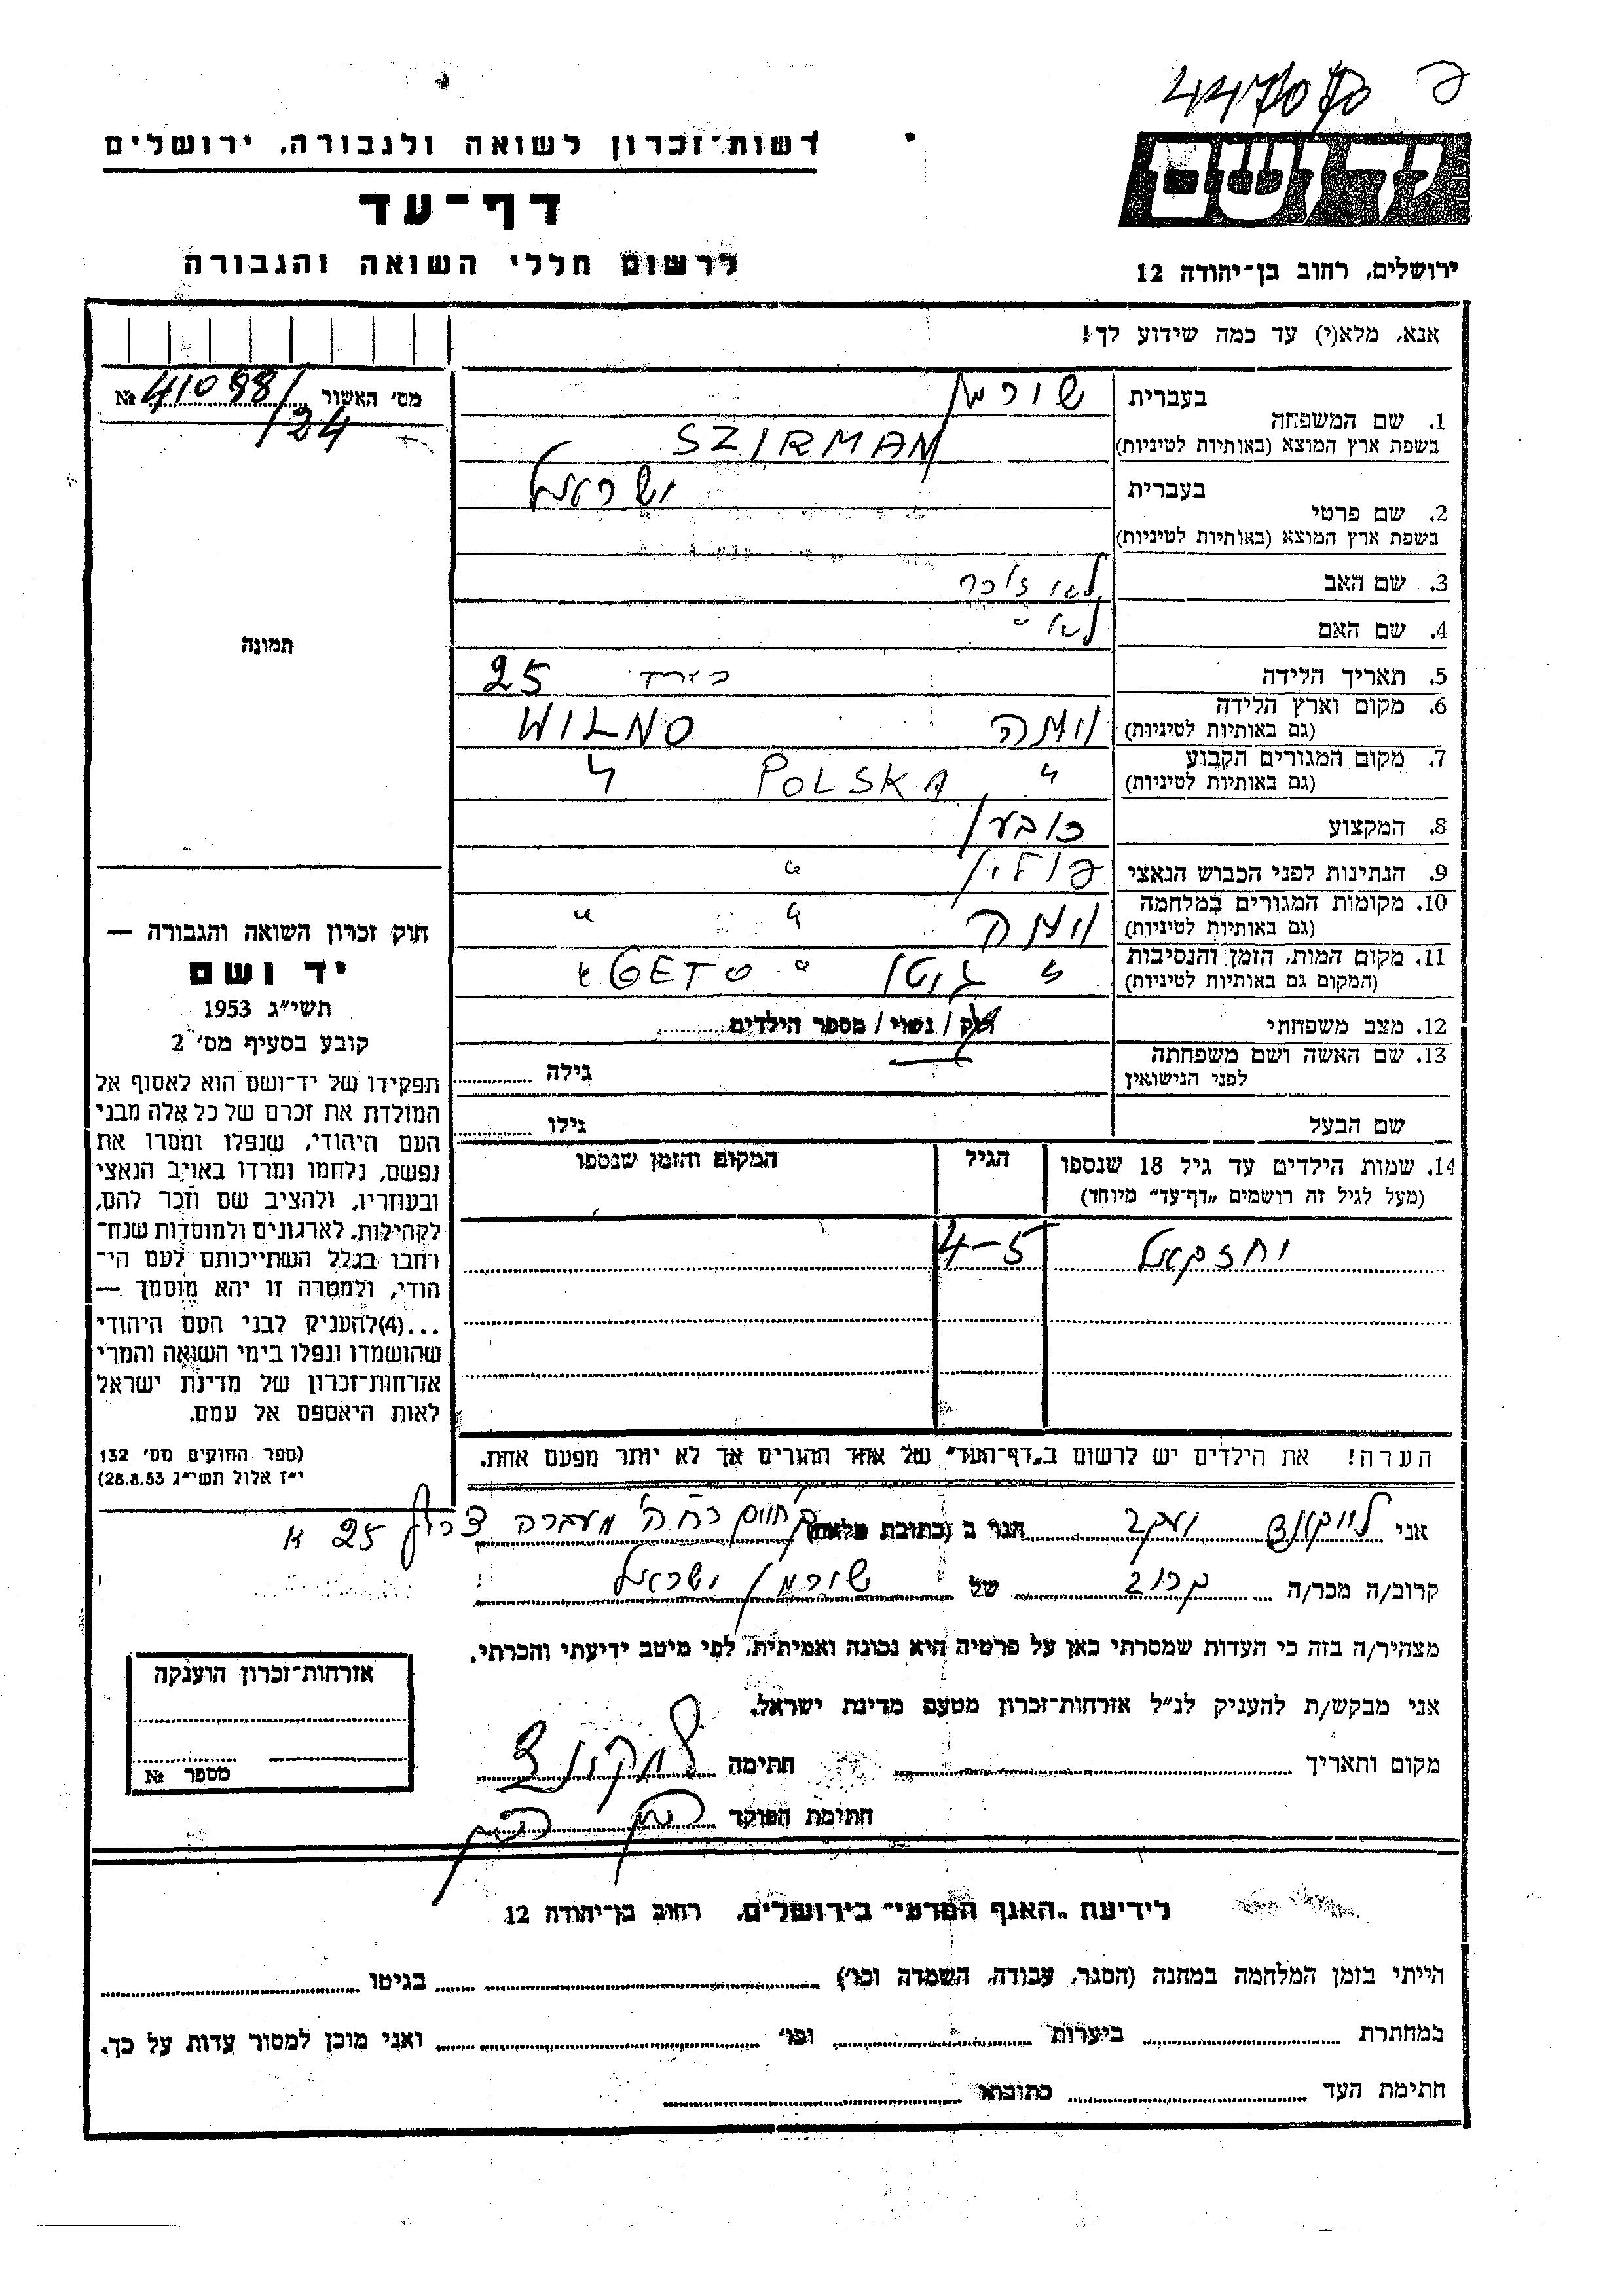 447070 פ
יד ושם
ירושלים, רחוב בן־יהודה 12
רשות־זכרון לשואה ולגבורה, ירושלים
דף־עד
לרשום חללי השואה והגבורה
אנא, מלא(י) עד כמה שידוע לך!
מס׳ האשור № 41088/24
תמונה
בעברית שירמן
1. שם המשפחה
בשפת ארץ המוצא (באותיות לטיניות) SZIRMAN
בעברית ישראל
2. שם פרטי
בשפת ארץ המוצא (באותיות לטיניות)
3. שם האב לא זוכר
4. שם האם לא "
5. תאריך הלידה בערך 25
6. מקום וארץ הלידה וילנה WILNO
(גם באותיות לטיניות)
7. מקום המגורים הקבוע " POLSKA "
(גם באותיות לטיניות)
8. המקצוע כובען
9. הנתינות לפני הכבוש הנאצי פולין "
10. מקומות המגורים במלחמה וילנה " "
(גם באותיות לטיניות)
11. מקום המות, הזמן והנסיבות " גיטו " GETO "
(המקום גם באותיות לטיניות)
12. מצב משפחתי רווק / נשוי / מספר הילדים
13. שם האשה ושם משפחתה
לפני הנישואין גילה
שם הבעל גילו
14. שמות הילדים עד גיל 18 שנספו הגיל המקום והזמן שנספו
(מעל לגיל זה רושמים „דף־עד״ מיוחד)
יחזקאל 4-5
הערה! את הילדים יש לרשום ב„דף־העד״ של אחד ההורים אך לא יותר מפעם אחת.
חוק זכרון השואה והגבורה —
יד ושם
תשי״ג 1953
קובע בסעיף מס׳ 2
תפקידו של יד־ושם הוא לאסוף אל
המולדת את זכרם של כל אלה מבני
העם היהודי, שנפלו ומסרו את
נפשם, נלחמו ומרדו באויב הנאצי
ובעוזריו, ולהציב שם וזכר להם,
לקהילות, לארגונים ולמוסדות שנח־
רבו בגלל השתייכותם לעם הי־
הודי, ולמטרה זו יהא מוסמך —
...(4)להעניק לבני העם היהודי
שהושמדו ונפלו בימי השואה והמרי
אזרחות־זכרון של מדינת ישראל
לאות היאספם אל עמם.
(ספר החוקים מס׳ 132
י״ז אלול תשי״ג 28.8.53)
אני יעקב הגר ב (כתובת מלאה) מעברה 25 א
קרוב/ה מכר/ה קרוב של שירמן ישראל
מצהיר/ה בזה כי העדות שמסרתי כאן על פרטיה היא נכונה ואמיתית, לפי מיטב ידיעתי והכרתי.
אני מבקש/ת להעניק לנ״ל אזרחות־זכרון מטעם מדינת ישראל.
מקום ותאריך חתימה
חתימת הפוקד
אזרחות־זכרון הוענקה
מספר №
לידיעת „האגף המדעי״ בירושלים, רחוב בן־יהודה 12
הייתי בזמן המלחמה במחנה (הסגר, עבודה, השמדה וכו׳) בגיטו
במחתרת ביערות וכו׳ ואני מוכן למסור עדות על כך.
חתימת העד כתובתו